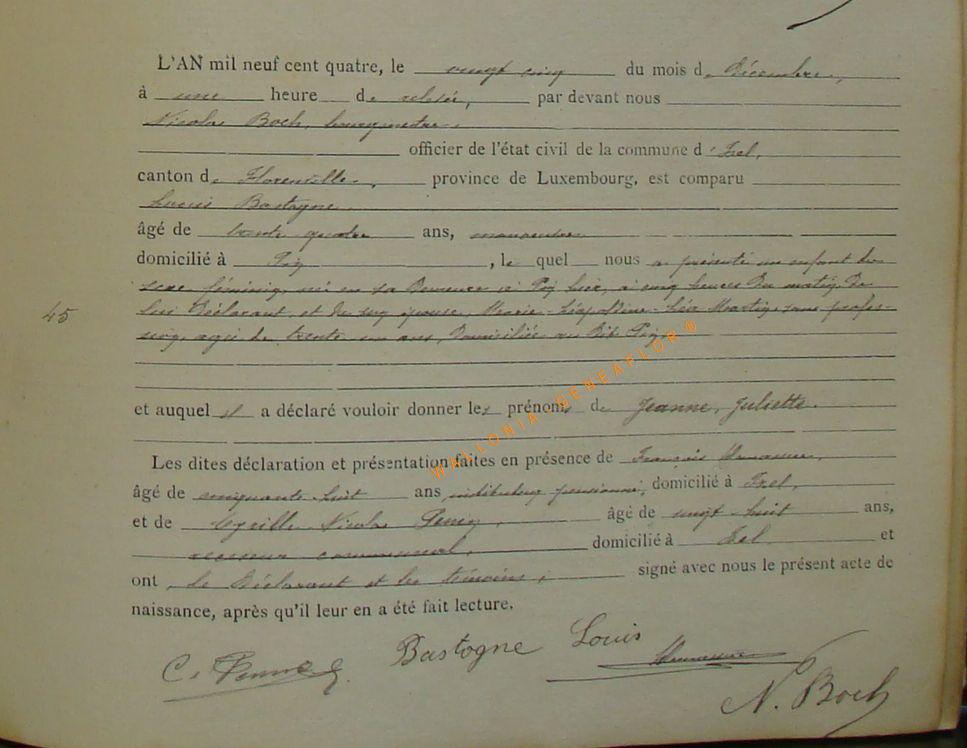 L'AN mil neuf cent quatre, le vingt cinq du mois de Décembre,
à une heure de relevée, par devant nous
Nicolas Boch, bourgmestre,
officier de l'état civil de la commune d'Izel,
canton de Florenville, province de Luxembourg, est comparu
Louis Bastogne,
âgé de trente quatre ans, manoeuvre
domicilié à Pin, lequel nous a présenté un enfant du
sexe féminin, né en sa Demeure à Pin hier, à cinq heures du matin, De
lui Déclarant, et de son épouse, Marie Léopoldine Léa Martin, sans profes-
45
sion, agée de trente un ans, Domiciliée au Dit Pin,
et auquel il a déclaré vouloir donner les prénoms de Jeanne, Juliette.
Les dites déclaration et présentation faites en présence de François
âgé de cinquante huit ans, instituteur pensionné, domicilié à Izel,
et de Cyrille Nicolas âgé de vingt-huit ans,
receveur communal, domicilié à Izel et
ont, le Déclarant et les témoins, signé avec nous le présent acte de
naissance, après qu'il leur en a été fait lecture.
C. Bastogne Louis
N. Boch
WALLONIA - GENEAFLOR ®